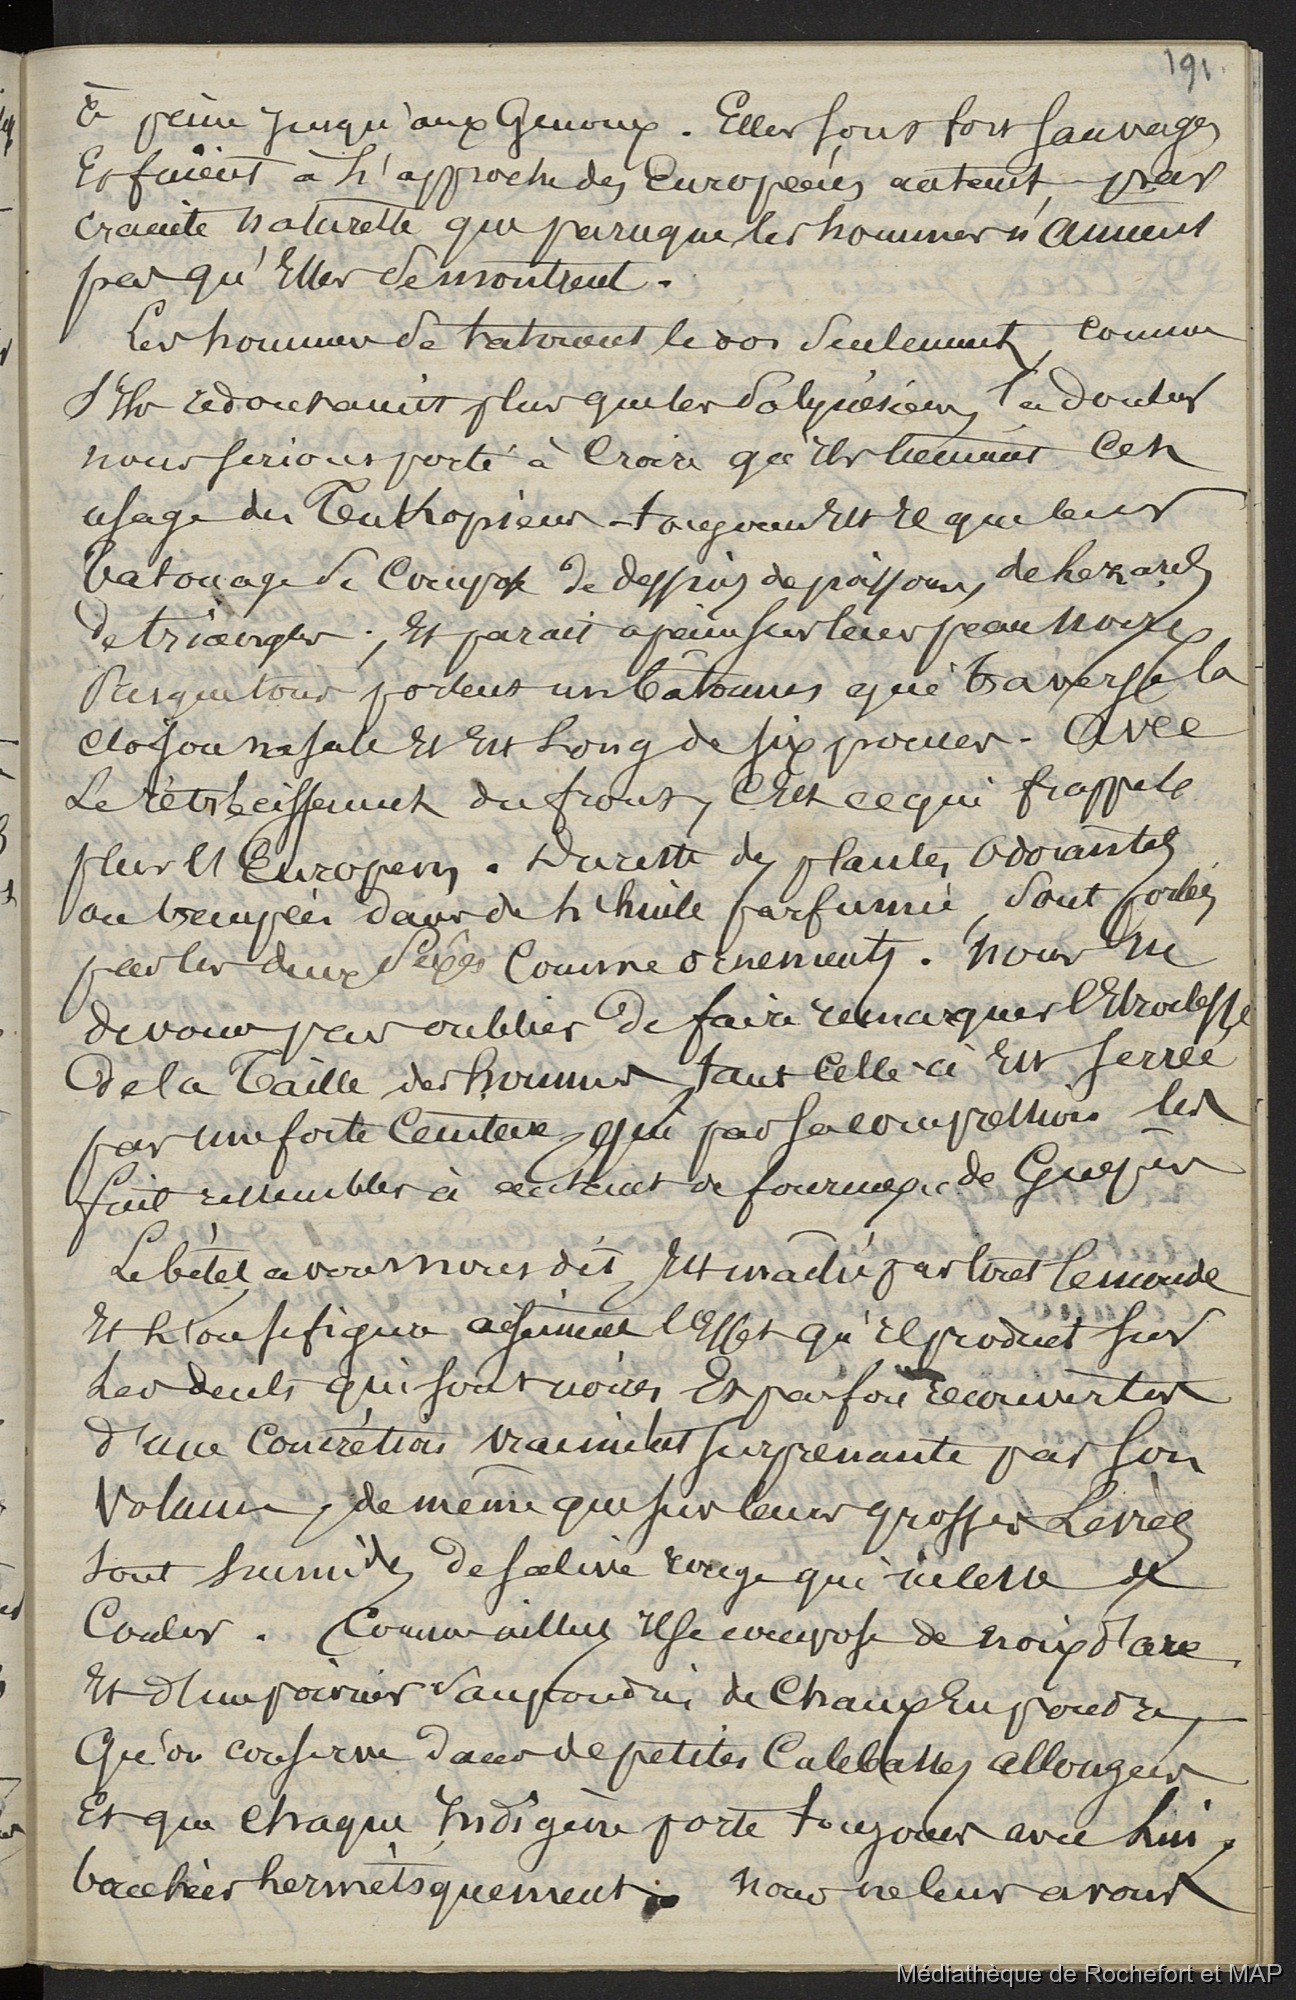 191.
à peine jusqu'aux Genoux. Elles sont fort sauvages
Et fuient à l'approche des Européens autant par
crainte naturelle que parceque les hommes n'aiment
pas qu'Elles se montrent.
Les hommes se tatouent le dos seulement, comme
s'ils redoutaient plus que les Polynésiens, la douleur
nous serions porté à croire qu'ils tiennent cet
usage des toujours Est il que leur
tatouage se compose de dessins de poissons, de lezards
de triangles ; Et parait a peine sur leur peau noire
Presque tous portent un bâtonnet qui traverse la
cloison nasale Et Est long de six pouces. Avec
Le rétrécissement du front, c'Est ce qui frappe le
plus l'Européen. Du reste des plantes odorantes
ou trempées dans de l'huile parfumée, sont portées
par les deux sexes comme ornements. Nous ne
devons pas oublier de faire remarquer l'Etroitesse
de la Taille des hommes, tant celle-ci Est serrée
par une forte Ceinture, qui par sa compression les
fait ressembler à autant de fourmis ou de Guepes
Le bétel, avons nous dit, Est maché par tout le monde
Et l'on se figure aisément l'Effet qu'il produit sur
les dents qui sont noires Et parfois recouvertes
d'une concrétion vraiment surprenante par son
Volume, de même que sur leurs grosses Lèvres
sont humides de salive rouge qui ne cesse de
Couler. Comme ailleurs il se compose de noix d'arec
Et d'un poivrier saupoudré de Chaux En poudre,
Qu'on conserve dans de petites Calebasses allongées
Et que chaque Indigène porte toujours avec lui,
bouchées hermétiquement. Nous ne leur avons
Médiathèque de Rochefort et MAP